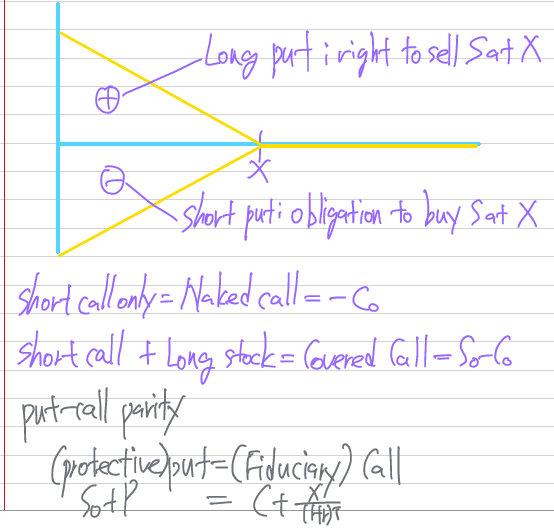 Long put : right to sell S at X
⊕
X
⊖
Short put : obligation to buy S at X
short call only = Naked call = -C₀
short call + Long stock = Covered Call = S₀-C₀
put-call parity
(protective) put = (Fiduciary) Call
S₀+P = C+ X/(1+r)ᵀ